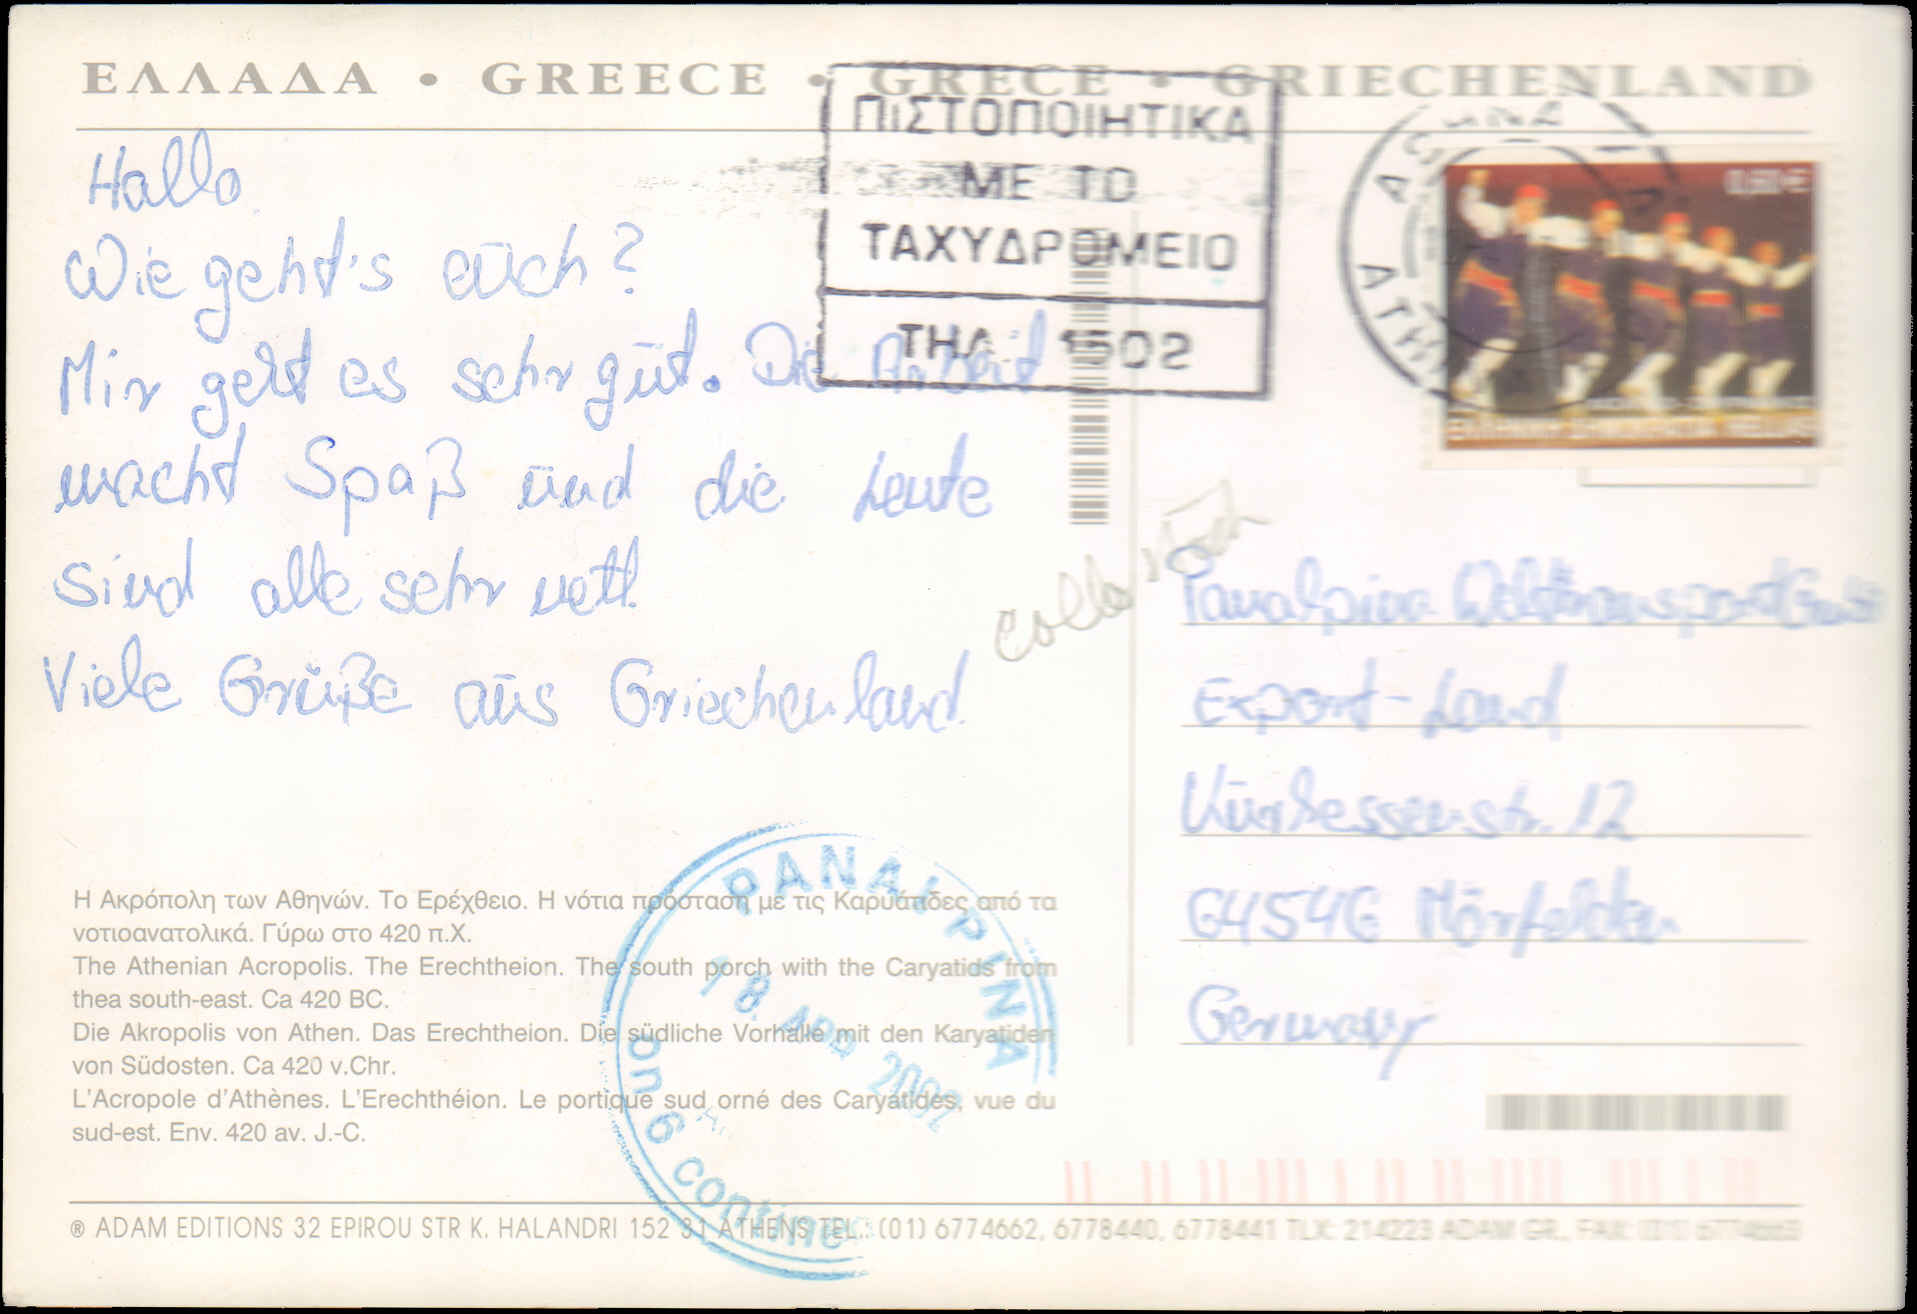 ΕΛΛΑΔΑ • GREECE • GRECE • GRIECHENLAND
ΠΙΣΤΟΠΟΙΗΤΙΚΑ
ΜΕ ΤΟ
ΤΑΧΥΔΡΟΜΕΙΟ
ΤΗΛ 1502
0,60€
Hallo
Wie geht's euch?
Mir geht es sehr gut. Die Arbeit
macht Spaß und die Leute
sind alle sehr nett.
Viele Grüße aus Griechenland
Panalpina Welttransport GmbH
Export-Land
Kürhessenstr. 12
64546 Mörfelden
Germany
Η Ακρόπολη των Αθηνών. Το Ερέχθειο. Η νότια πρόσταση με τις Καρυάτιδες από τα
νοτιοανατολικά. Γύρω στο 420 π.Χ.
The Athenian Acropolis. The Erechtheion. The south porch with the Caryatids from
thea south-east. Ca 420 BC.
Die Akropolis von Athen. Das Erechtheion. Die südliche Vorhalle mit den Karyatiden
von Südosten. Ca 420 v.Chr.
L'Acropole d'Athènes. L'Erechthéion. Le portique sud orné des Caryatides, vue du
sud-est. Env. 420 av. J.-C.
PANALPINA
18. APR. 2002
on 6 contine
® ADAM EDITIONS 32 EPIROU STR K. HALANDRI 152 31 ATHENS TEL.: (01) 6774662, 6778440, 6778441 TLX: 214223 ADAM GR., FAX: (01)